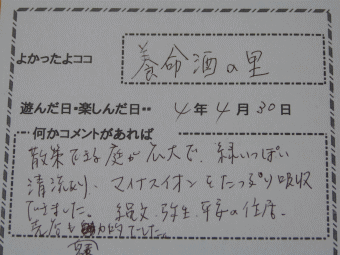 よかったよココ
養命酒の里
遊んだ日・楽しんだ日・・ 4年 4月 30日
何かコメントがあれば
散策できる庭が広大で、緑いっぱい
清流あり、マイナスイオンをたっぷり吸収
できました。縄文、弥生、平安の住居。
も魅力的でした。